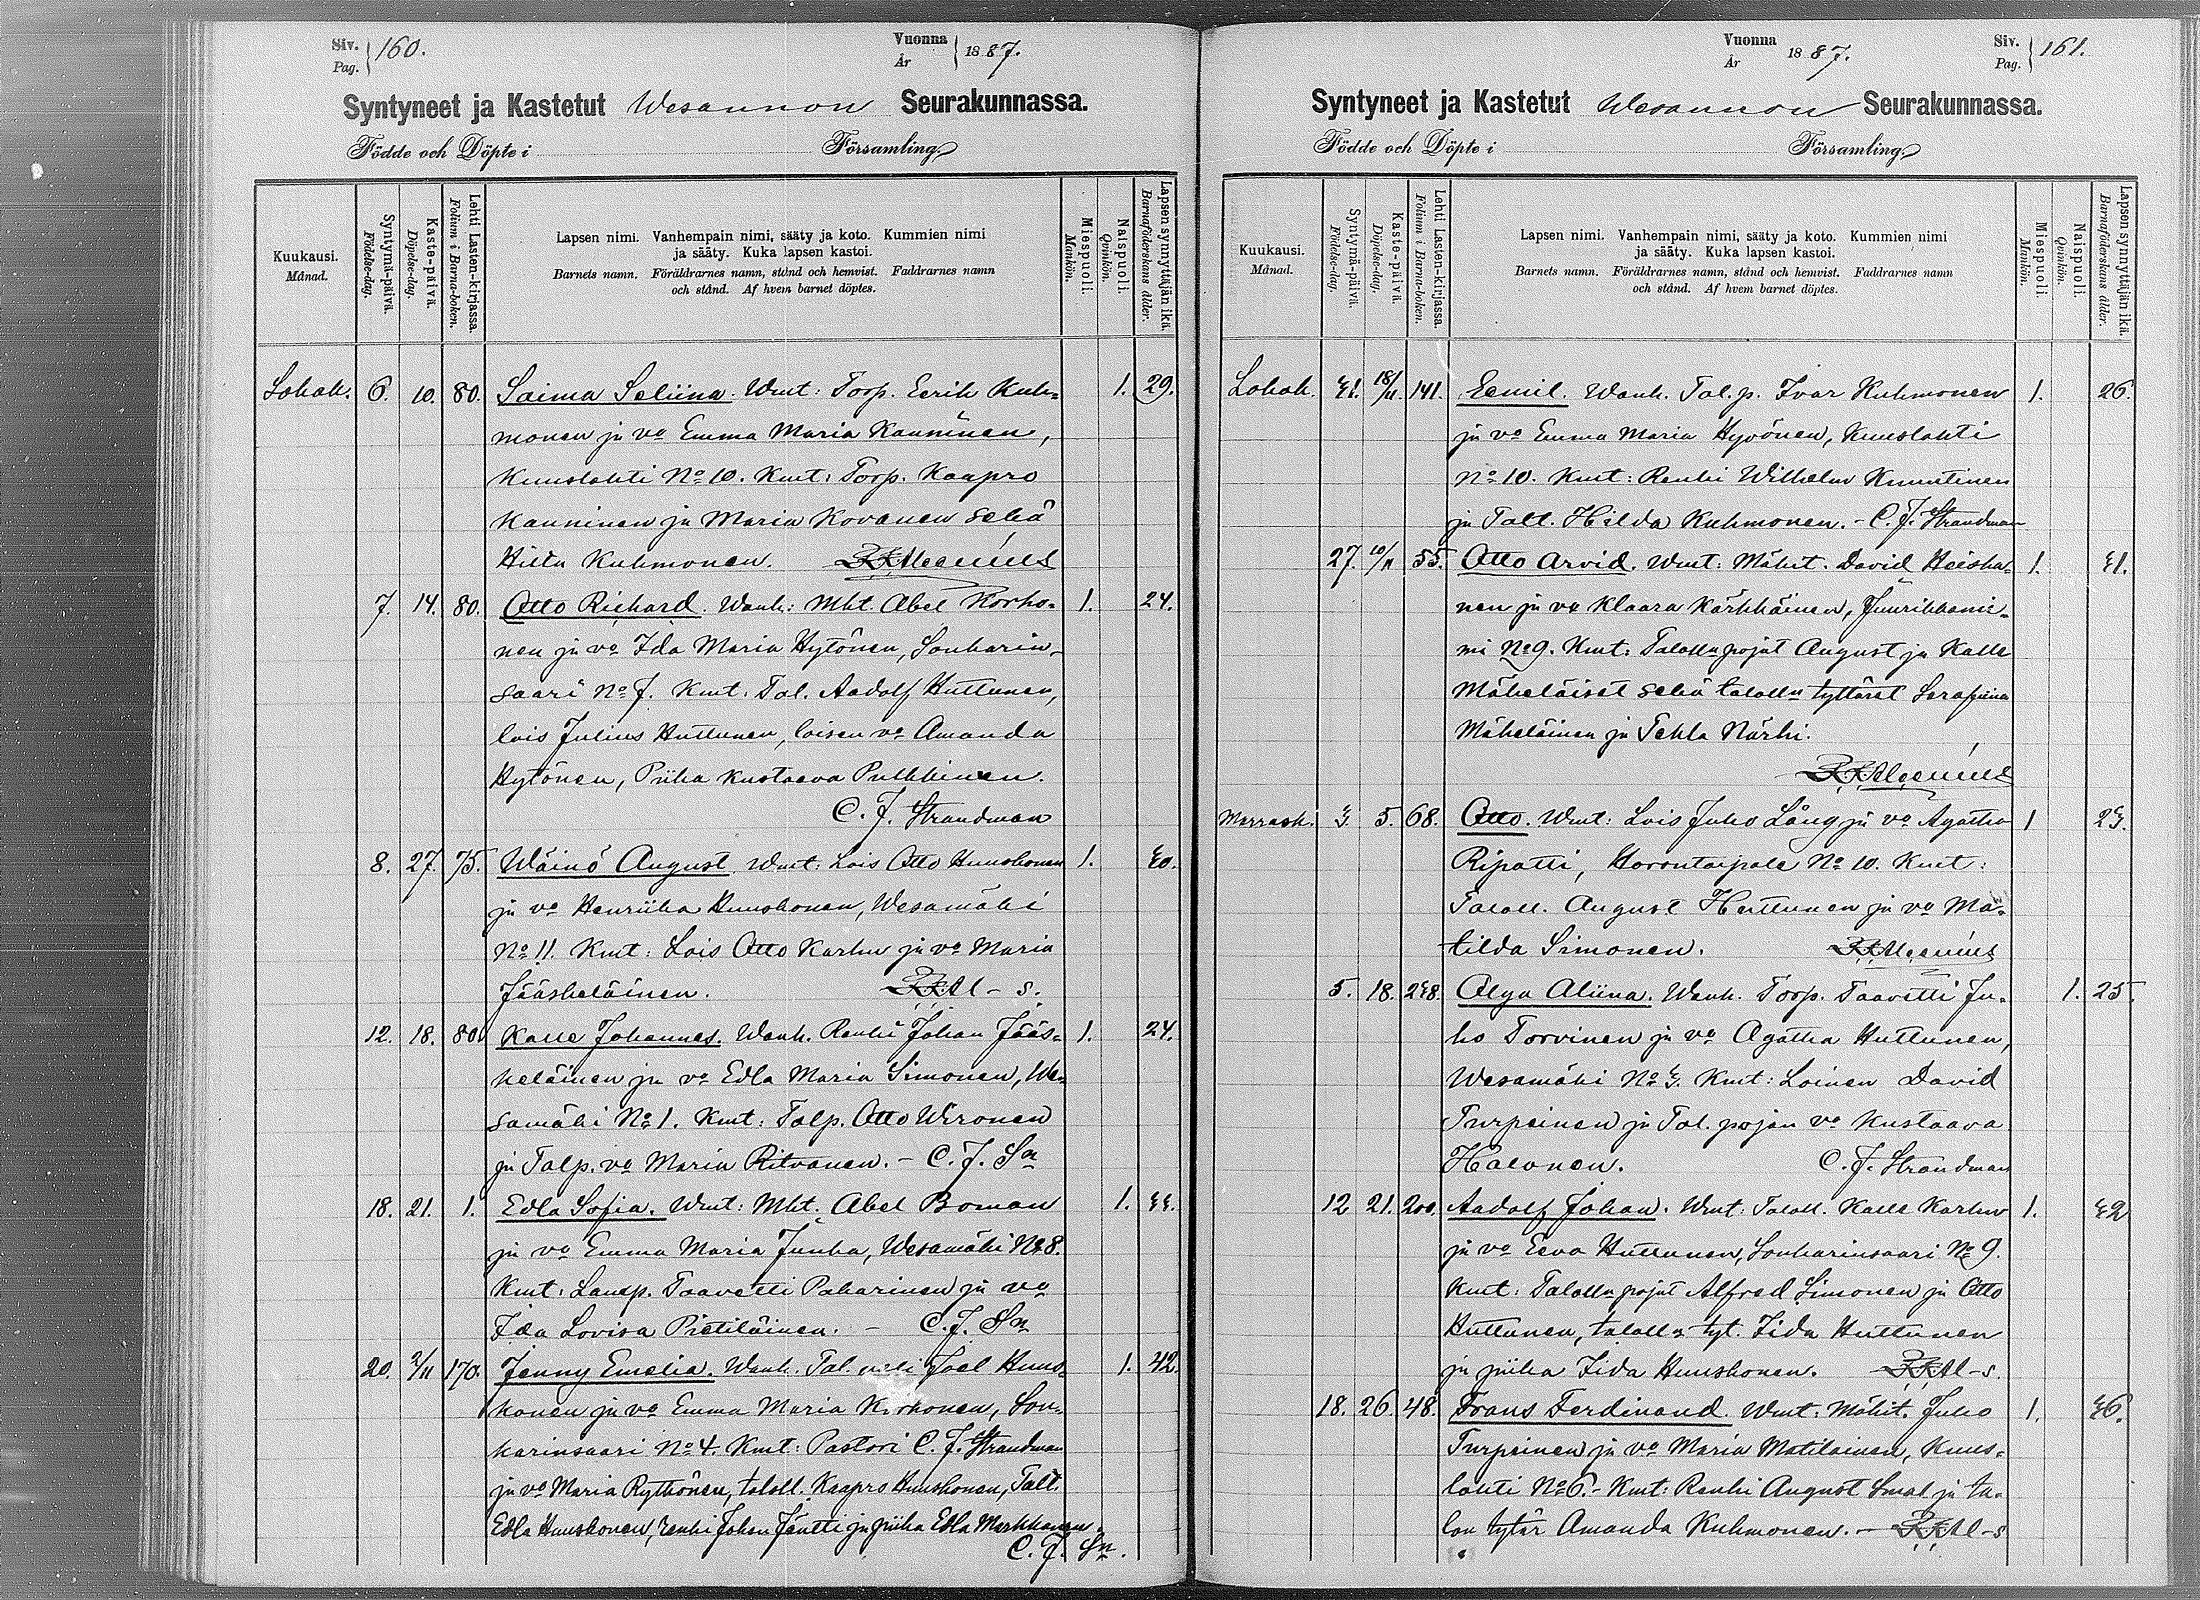 Siv. Pag. 160. Vuonna År 1887.
Syntyneet ja Kastetut Wesannon Seurakunnassa.
Födde och Döpte i Församling.
Kuukausi. Månad.
Syntymä-päivä. Födelse-dag.
Kaste-päivä. Döpelse-dag.
Lehti Lasten-kirjassa. Folium i Barna-boken.
Lapsen nimi. Vanhempain nimi, sääty ja koto. Kummien nimi
ja sääty. Kuka lapsen kastoi.
Barnets namn. Föräldrarnes namn, stånd och hemvist. Faddrarnes namn
och stånd. Af hvem barnet döptes.
Miespuoli. Mankön.
Naispuoli. Qvinkön.
Lapsen synnyttäjän ikä. Barnaföderskans ålder.
Lokak. 6. 10. 80. Saima Seliina. Wmt: Torp. Eerik Kuh- 1. 29.
monen ja vo Emma Maria Kauninen,
Kuuslahti No 10. Kmt: Torp. Kaapro
Kauninen ja Maria Kovanen sekä
Kuhmonen.
7. 14. 80. Otto Richard. Wanh: Mkt. Abel Korho- 1. 24.
nen ja vo Ida Maria Hytönen, Sonkarin-
saari No 7. Kmt: Tal. Aadolf Huttunen,
lois Julius Huttunen, loisen vo Amanda
Hytönen, Piika Kustaava Pulkkinen.
C. J. Strandman
8. 27. 75. Wäinö August. Wmt: Lois Otto Huuskonen 1. 30.
ja vo Henriika Huuskonen, Wesamäki
No 11. Kmt: Lois Otto Karhu ja vo Maria
Jääskeläinen.
12. 18. 80. Kalle Johannes. Wanh. Renki Johan Jääs- 1. 24.
keläinen ja vo Edla Maria Simonen, We-
samäki No 1. Kmt: Talp. Otto Wironen
ja Talp. vo Maria Ritvanen. - C. J. Sn
18. 21. 1. Edla Sofia. Wmt: Mkt. Abel Boman 1. 33.
ja vo Emma Maria Junka, Wesamäki No 8.
Kmt: Lamp. Taavetti Pakarinen ja vo
Ida Lovisa Pietiläinen. - C. J. Sn
20. 2/11 170. Jenny Emelia. Wanh. Tal. Joel Huus- 1. 42.
konen ja vo Emma Maria Korhonen, Son-
karinsaari No 4. Kmt: Pastori C. J. Strandman
ja vo Maria Rytkönen, taloll. Kaapro Huuskonen, Talt.
Edla Huuskonen, renki Johan Jäntti ja piika Edla Markkanen.
C. J. Sn.
Vuonna År 1887. Siv. Pag. 161.
Syntyneet ja Kastetut Wesannon Seurakunnassa.
Födde och Döpte i Församling.
Kuukausi. Månad.
Syntymä-päivä. Födelse-dag.
Kaste-päivä. Döpelse-dag.
Lehti Lasten-kirjassa. Folium i Barna-boken.
Lapsen nimi. Vanhempain nimi, sääty ja koto. Kummien nimi
ja sääty. Kuka lapsen kastoi.
Barnets namn. Föräldrarnes namn, stånd och hemvist. Faddrarnes namn
och stånd. Af hvem barnet döptes.
Miespuoli. Mankön.
Naispuoli. Qvinkön.
Lapsen synnyttäjän ikä. Barnaföderskans ålder.
Lokak. 31. 18/11 141. Eemil. Wanh. Tal. p. Ivar Kuhmonen 1. 26.
ja vo Emma Maria Hyvönen, Kuuslahti
No 10. Kmt: Renki Wilhelm Knuutinen
ja Talt. Hilda Kuhmonen. - C. J. Strandman
27. 10/11 55. Otto Arvid. Wmt: Mäkit. David Heiska- 1. 31.
nen ja vo Klaara Kärkkäinen, Juurikkanie-
mi No 9. Kmt: Talolln pojat August ja Kalle
Mäkeläiset sekä talolln tyttäret Serafiina
Mäkeläinen ja Tekla Närhi.
Marrask. 3. 5. 68. Otto. Wmt: Lois Juho Lång ja vo Agatha 1 23.
Ripatti, Horontaipale No 10. Kmt:
Taloll. August Huttunen ja vo Ma-
tilda Simonen.
5. 18. 238. Olga Aliina. Wanh. Torp. Taavetti Ju- 1. 25.
ho Torvinen ja vo Agatha Huttunen,
Wesamäki No 3. Kmt: Loinen David
Turpeinen ja Tal. pojan vo Kustaava
Halonen. C. J. Strandman
12 21. 200. Aadolf Johan. Wmt: Taloll. Kalle Karhu 1. 32
ja vo Eeva Huttunen, Sonkarinsaari No 9.
Kmt: Talolln pojat Alfred Simonen ja Otto
Huttunen, talolln tyt. Iida Huttunen
ja piika Iida Huuskonen.
18. 26. 48. Frans Ferdinand. Wmt: Mäkit. Juho 1. 36.
Turpeinen ja vo Maria Matilainen, Kuus-
lahti No 6. - Kmt: Renki August Smal ja ta-
lon tytär Amanda Kuhmonen. -